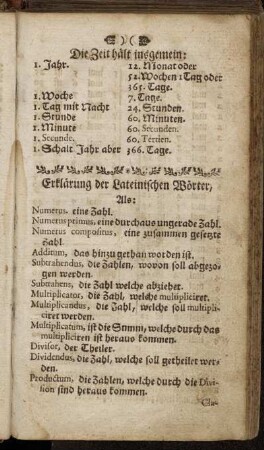 ) (
Die Zeit hält insgemein:
1. Jahr. 12. Monat oder
52. Wochen 1 Tag oder
365. Tage.
1. Woche 7. Tage.
1. Tag mit Nacht 24. Stunden.
1. Stunde 60. Minuten.
1. Minute 60. Secunden.
1. Secunde. 60. Tertien.
1. Schalt Jahr aber 366. Tage.
Erklärung der Lateinischen Wörter,
Als:
Numerus. eine Zahl.
Numerus primus, eine durchaus ungerade Zahl.
Numerus compositus, eine zusammen gesetzte
Zahl.
Additum, das hinzu gethan worden ist.
Subtrahendus, die Zahlen, wovon soll abgezo-
gen werden.
Subtrahens, die Zahl welche abziehet.
Multiplicator, die Zahl, welche multipliciret.
Multiplicandus, die Zahl, welche soll multipli-
ciret werden.
Multiplicatum, ist die Summ, welche durch das
multipliciren ist heraus kommen.
Divisor, der Theiler.
Dividendus, die Zahl, welche soll getheilet wer-
den.
Productum, die Zahlen, welche durch die Divi-
sion sind heraus kommen.